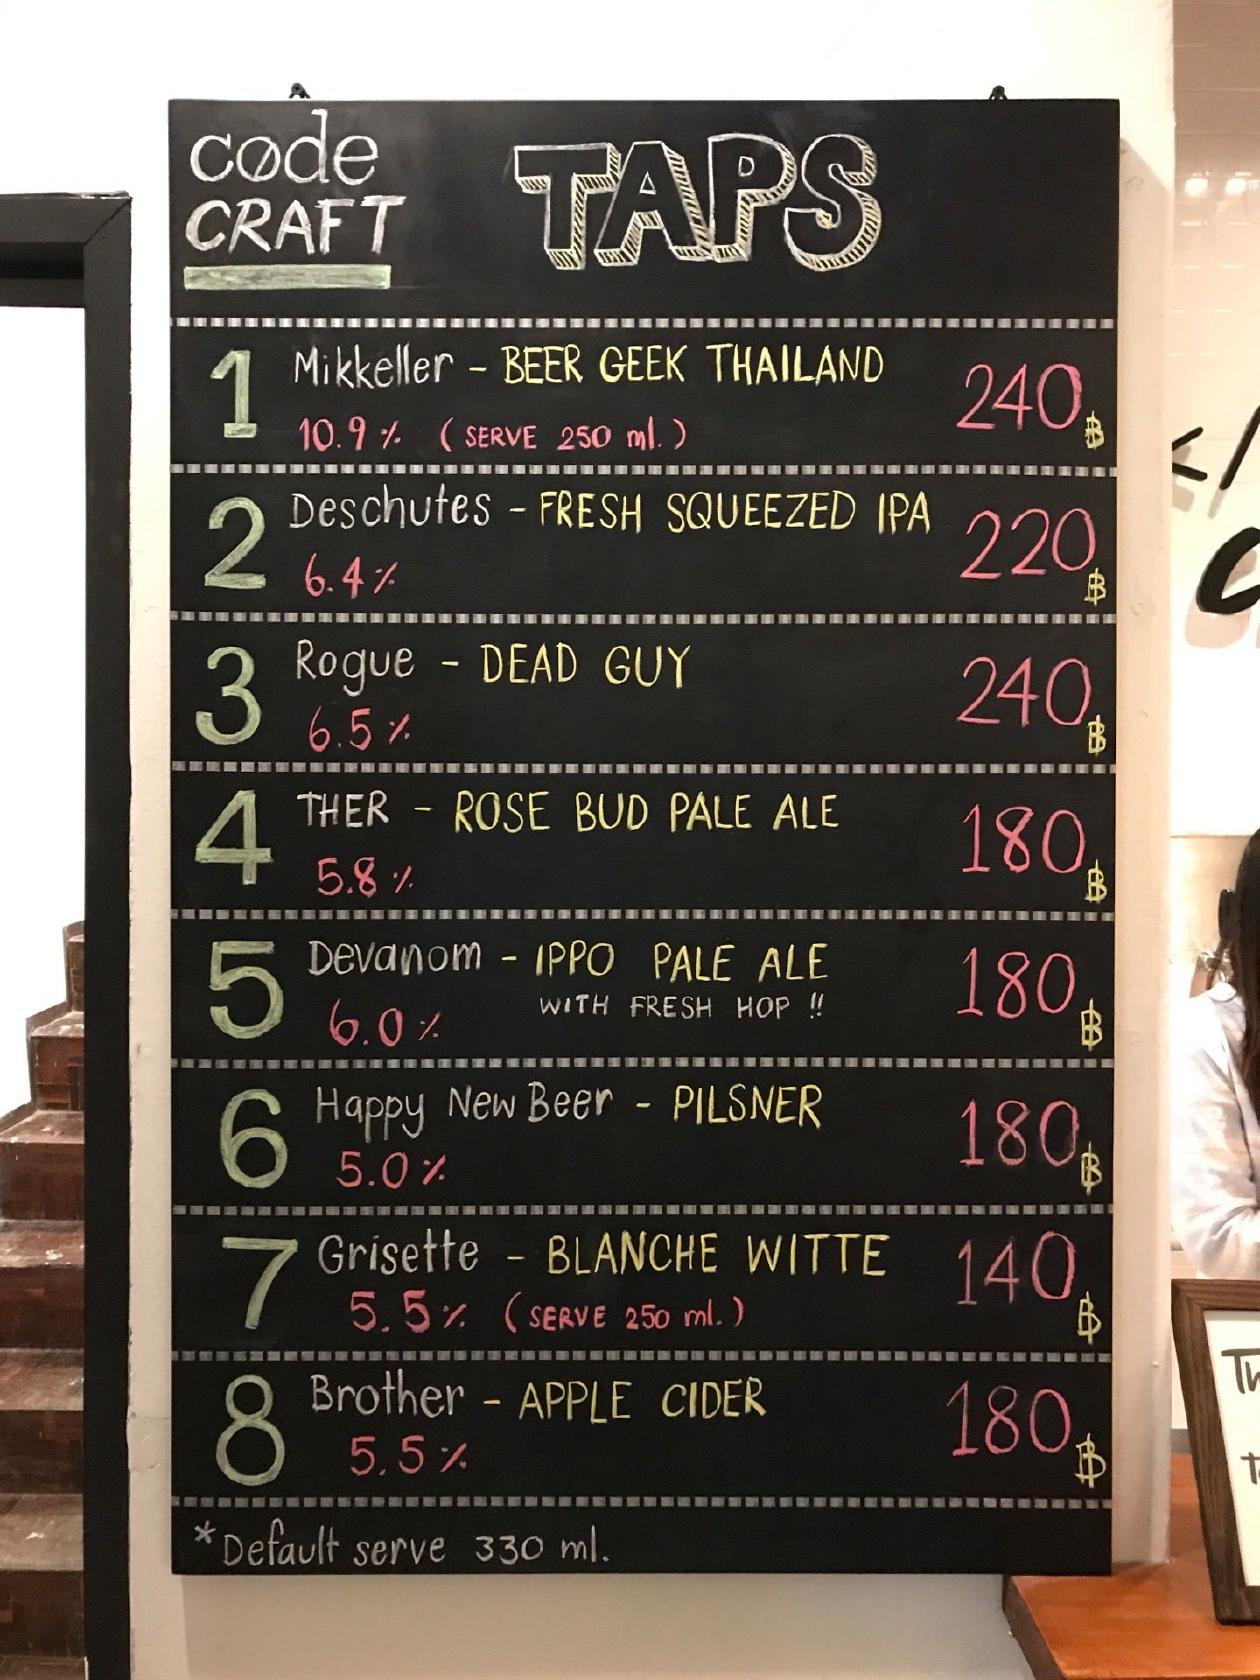 code
CRAFT
TAPS
1 Mikkeller - BEER GEEK THAILAND 240฿
10.9% (SERVE 250 ml.)
2 Deschutes - FRESH SQUEEZED IPA 220฿
6.4%
3 Rogue - DEAD GUY 240฿
6.5%
4 THER - ROSE BUD PALE ALE 180฿
5.8%
5 Devanom - IPPO PALE ALE 180฿
WITH FRESH HOP !!
6.0%
6 Happy New Beer - PILSNER 180฿
5.0%
7 Grisette - BLANCHE WITTE 140฿
5.5% (SERVE 250 ml.)
8 Brother - APPLE CIDER 180฿
5.5%
*Default serve 330 ml.